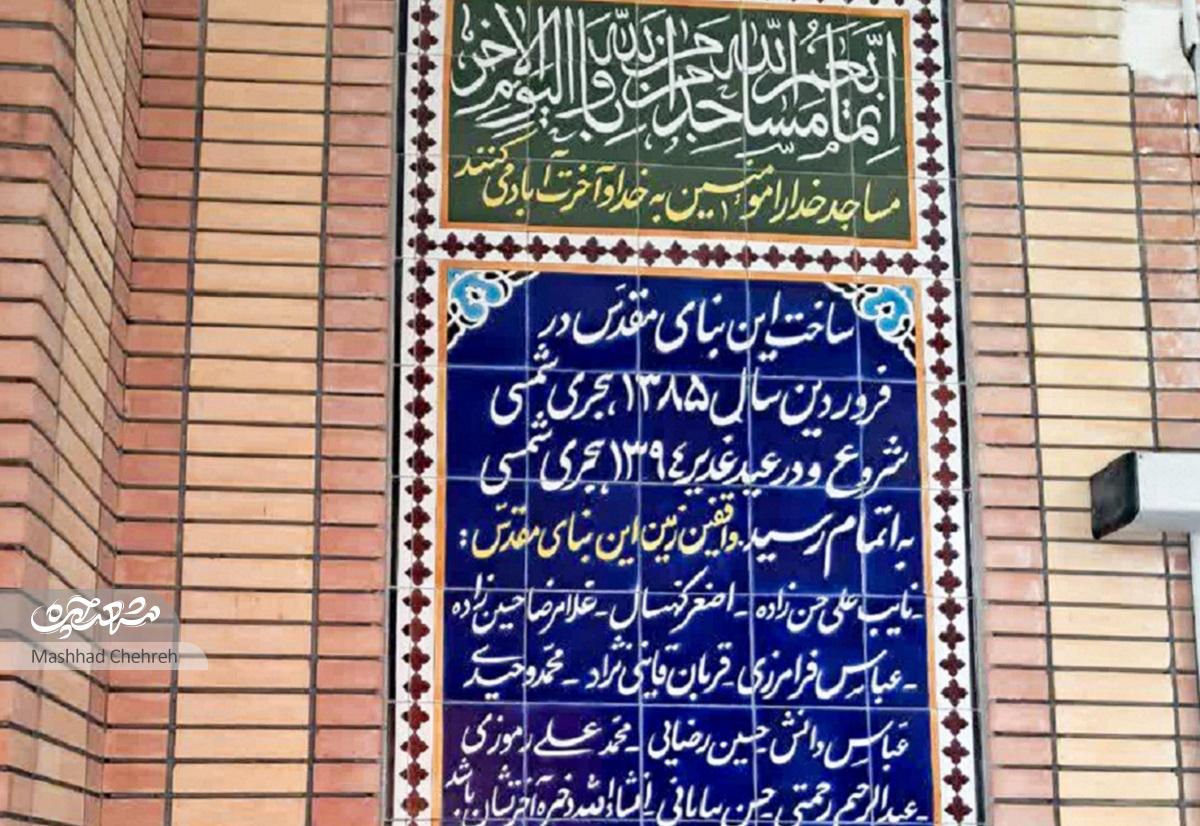 إنَّما يَعمُرُ مَساجِدَ اللهِ مَن آمَنَ بِاللهِ وَالیَومِ الآخِر
مساجد خدا را مومنین به خدا و آخرت آباد می کنند
ساخت این بنای مقدّس در
فروردین سال ۱۳۸۵ هجری شمسی
شروع و در عید غدیر ۱۳۹٤ هجری شمسی
به اتمام رسید. واقفین زمین این بنای مقدّس :
ـ نایب علی حسن زاده ـ اصغر کهنسال ـ غلامرضا حسین زاده
ـ عباس فرامرزی ـ قربان قاینی نژاد ـ محمد وحیدی
عباس دانش ـ حسین رضایی ـ محمد علی رموزی
ـ عبدالرحیم رحمتی ـ حسن بیابانی ـ انشاءالله ذخیره آخرتشان باشد
شهرآرا
Mashhad Chehreh